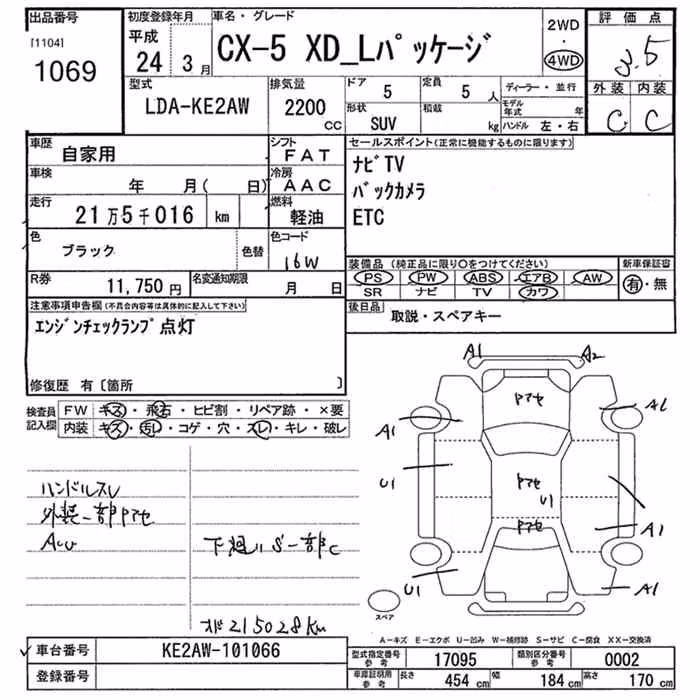 出品番号
[1104]
1069
初度登録年月
平成
24 3月
車名・グレード
CX-5 XD_Lパッケージ
2WD
・
4WD
評価点
3.5
外装 内装
C C
型式
LDA-KE2AW
排気量
2200
CC
ドア
5
定員
5人
形状
SUV
積載
kg
ディーラー・並行
モデル年式 年
ハンドル 左・右
車歴
自家用
シフト
FAT
車検
年 月( 日)
冷房
AAC
走行
21万5千016 km
燃料
軽油
色
ブラック
色替
色コード
16W
R券
11,750円
名変通知期限
月 日
セールスポイント(正常に機能するものに限ります)
ナビTV
バックカメラ
ETC
装備品 (純正品に限り〇をつけてください)
PS PW ABS エアB AW
SR ナビ TV カワ
新車保証書
有・無
後日品
取説・スペアキー
注意事項申告欄(不具合内容等は具体的に記入して下さい)
エンジンチェックランプ点灯
修復歴 有〔箇所 〕
検査員
記入欄
FW キズ・飛石・ヒビ割・リペア跡・×要
内装 キズ・汚レ・コゲ・穴・スレ・キレ・破レ
ハンドルスレ
外装一部ドアセ
下廻りS一部C
メーター215028Km
A1 A2
A1 A1
U1 U1
A1
U1 A1
スペア
A-キズ E-エクボ U-凹み W-補修跡 S-サビ C-腐食 XX-交換済
車台番号
KE2AW-101066
登録番号
型式指定番号
参考
17095
類別区分番号
参考
0002
車庫証明用
参考
長さ 454 cm 幅 184 cm 高さ 170 cm